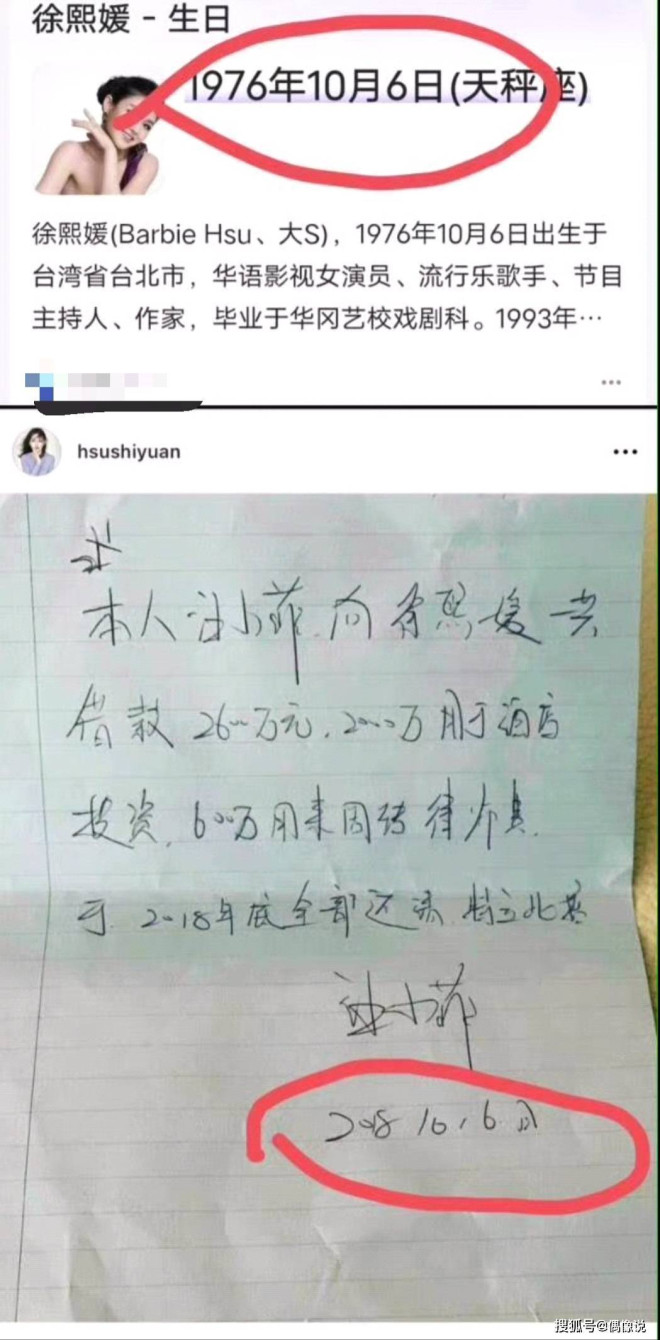 徐熙媛 - 生日
1976年10月6日(天秤座)
徐熙媛(Barbie Hsu、大S)，1976年10月6日出生于
台湾省台北市，华语影视女演员、流行乐歌手、节目
主持人、作家，毕业于华冈艺校戏剧科。1993年…
hsushiyuan
本人汪小菲向徐熙媛共
借款2600万元，2000万用于酒店
投资，600万用来周转律师费，
于2018年底全部还清，特立此据
汪小菲
2018 10.6日
搜狐号@偶像说